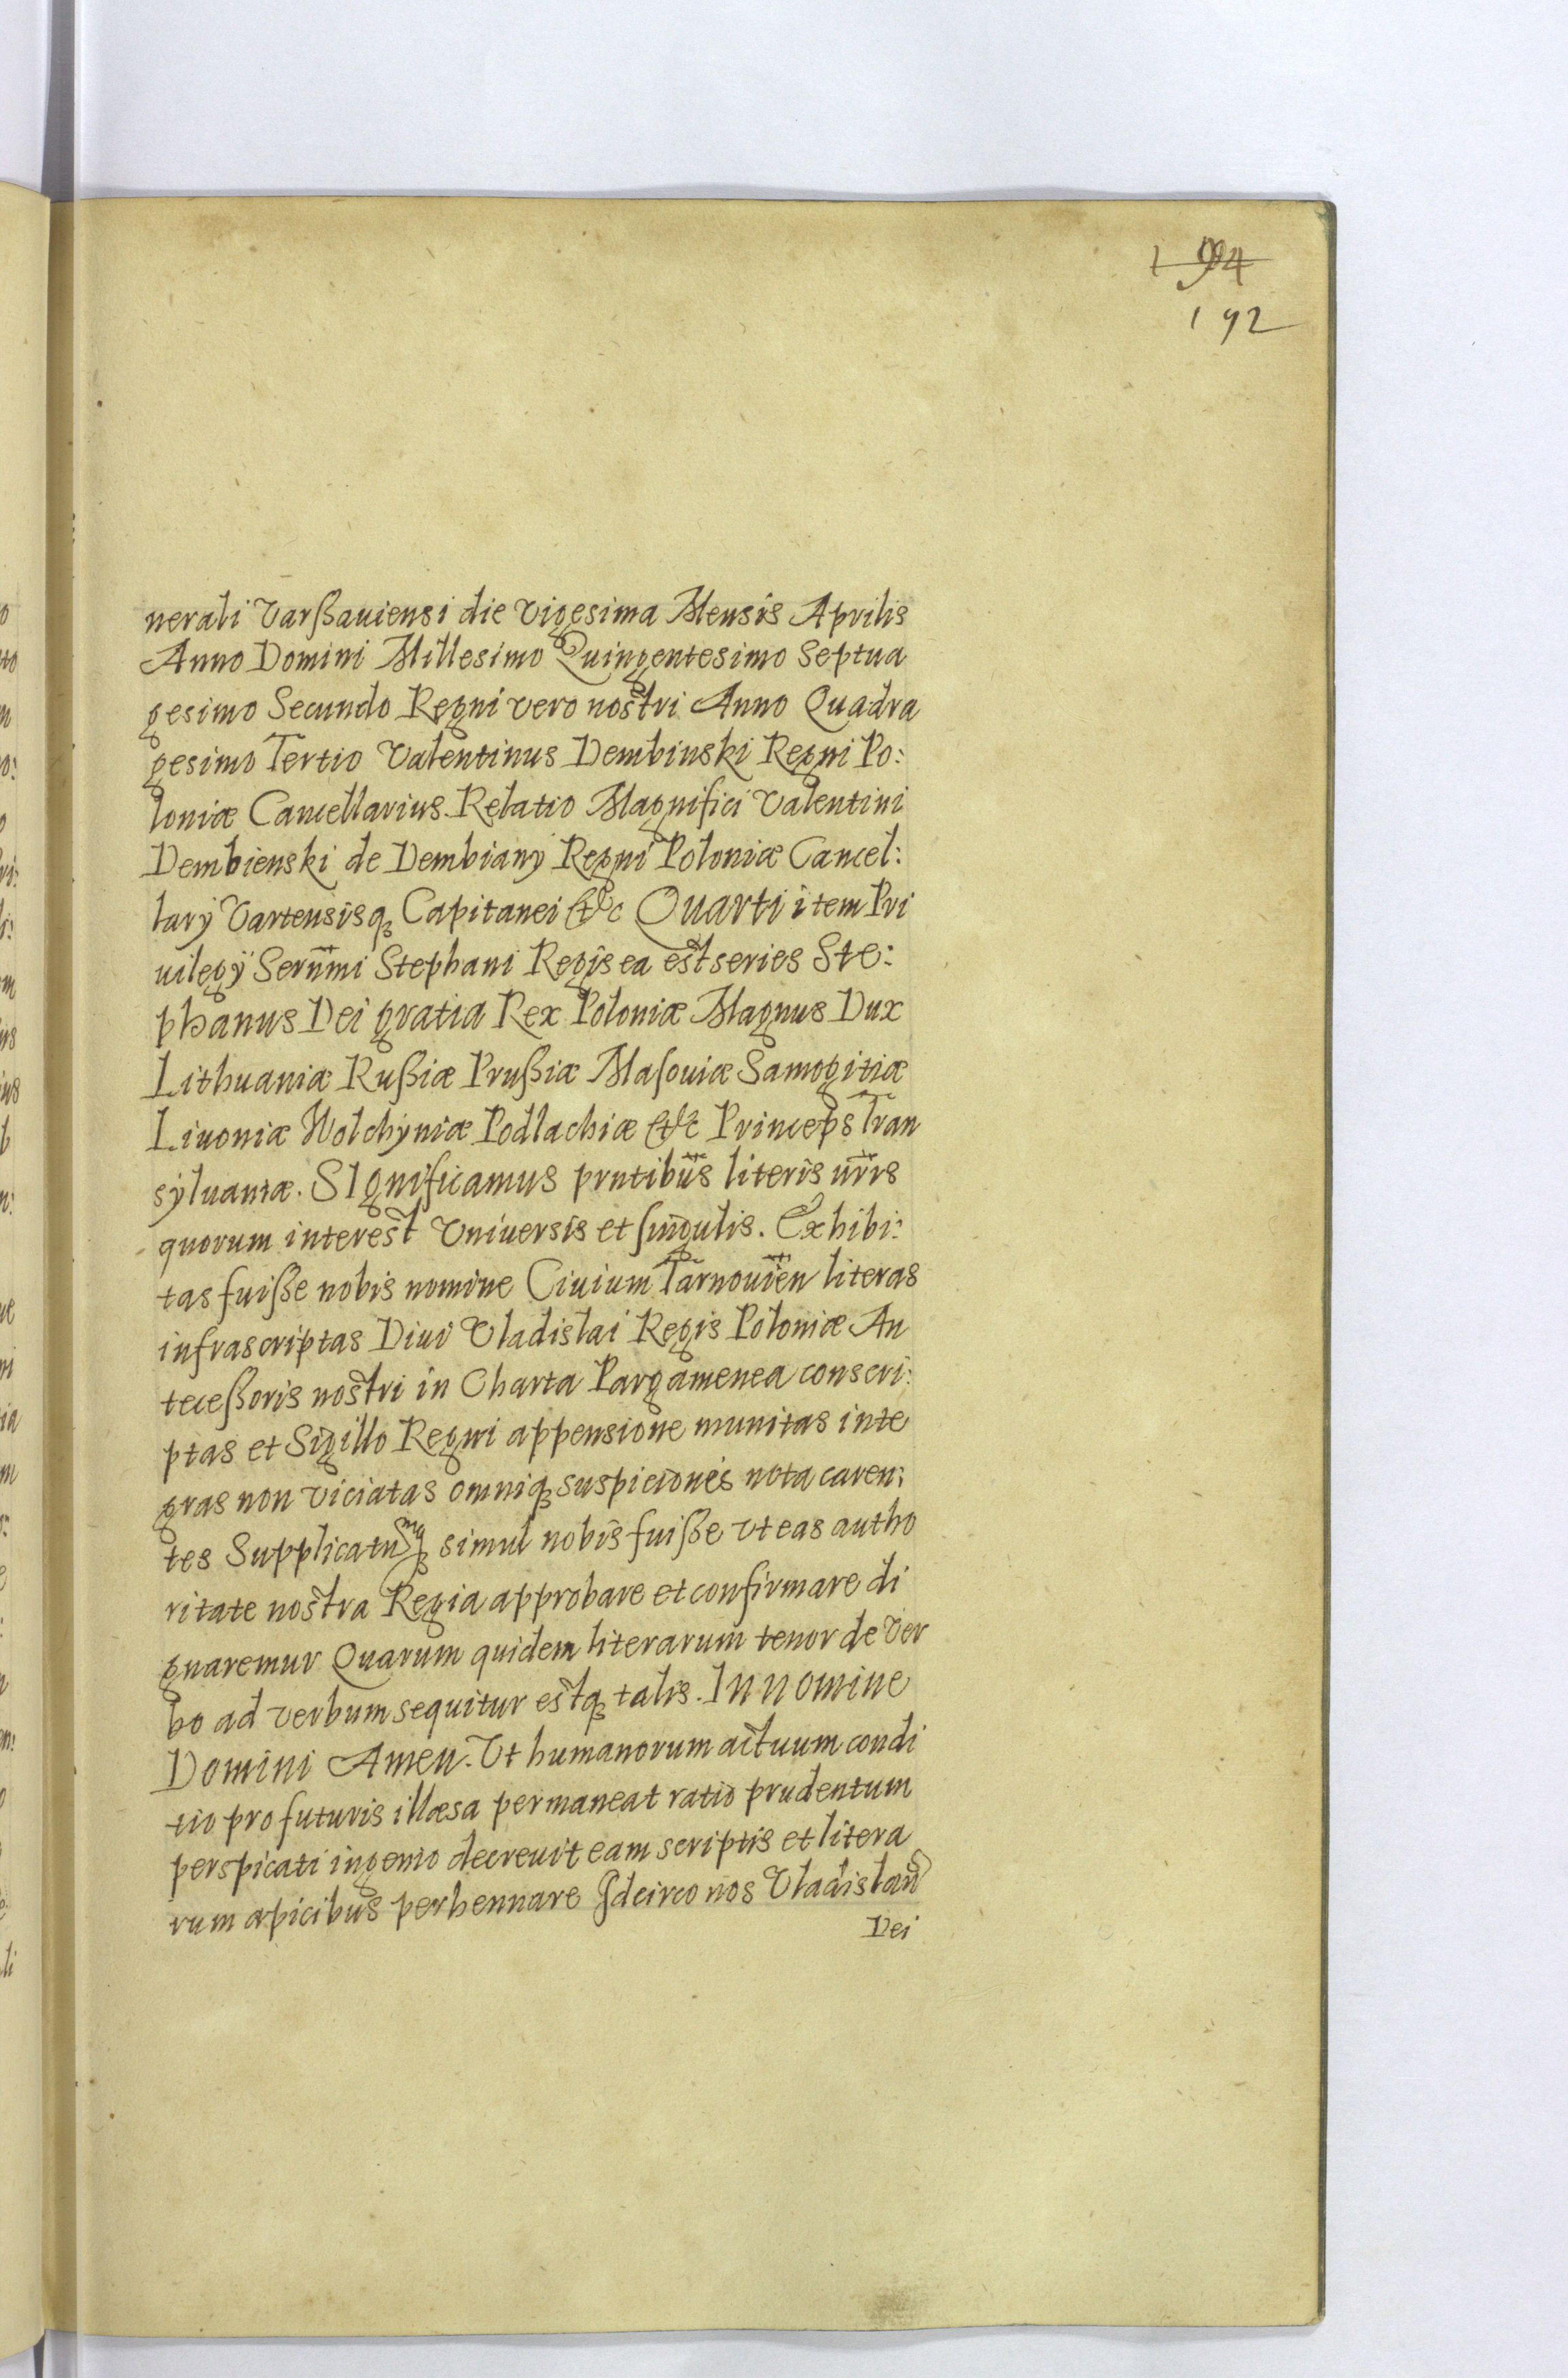 194
192
nerali Varßauiensi die Vigesima Mensis Aprilis
Anno Domini Millesimo Quingentesimo Septua
gesimo Secundo Regni vero nostri Anno Quadra
gesimo Tertio Valentinus Dembinski Regni Po:
loniæ Cancellarius. Relatio Magnifici Valentini
Dembienski de Dembiany Regni Poloniæ Cancel:
larÿ Vartensisq3 Capitanei &c Quarti item Pri
uilegÿ Serñmi Stephani Regis ea est series Ste:
phanus Dei gratia Rex Poloniæ Magnus Dux
Lithuaniæ Rußiæ Prußiæ Maſouiæ Samogitiæ
Liuoniæ Wolchyniæ Podlachiæ &c Princeps Tran
syluaniæ. SIgnificamus pn̄tibus literis nr̄is
quorum interest Vniuersis et ſingulis. Exhibi:
tas fuiße nobis nomine Ciuium Tarnouien̄ literas
infrascriptas Diui Vladislai Regis Poloniæ An
teceßoris nostri in Charta Pargamenea conscri:
ptas et Sigillo Regni appensione munitas inte
gras non viciatas omniq3 suspicionis nota caren:
tes Supplicatumq3 simul nobis fuiße vt eas autho
ritate nostra Regia approbare et confirmare di
gnaremur Quarum quidem literarum tenor de Ver
bo ad verbum sequitur estq3 talis. In nomine
Domini Amen. Vt humanorum actuum condi
tio pro futuris illæsa permaneat ratio prudentum
perspicati ingenio decreuit eam scriptis et litera
rum apicibus perhennare Idcirco nos Vladislaus
Dei